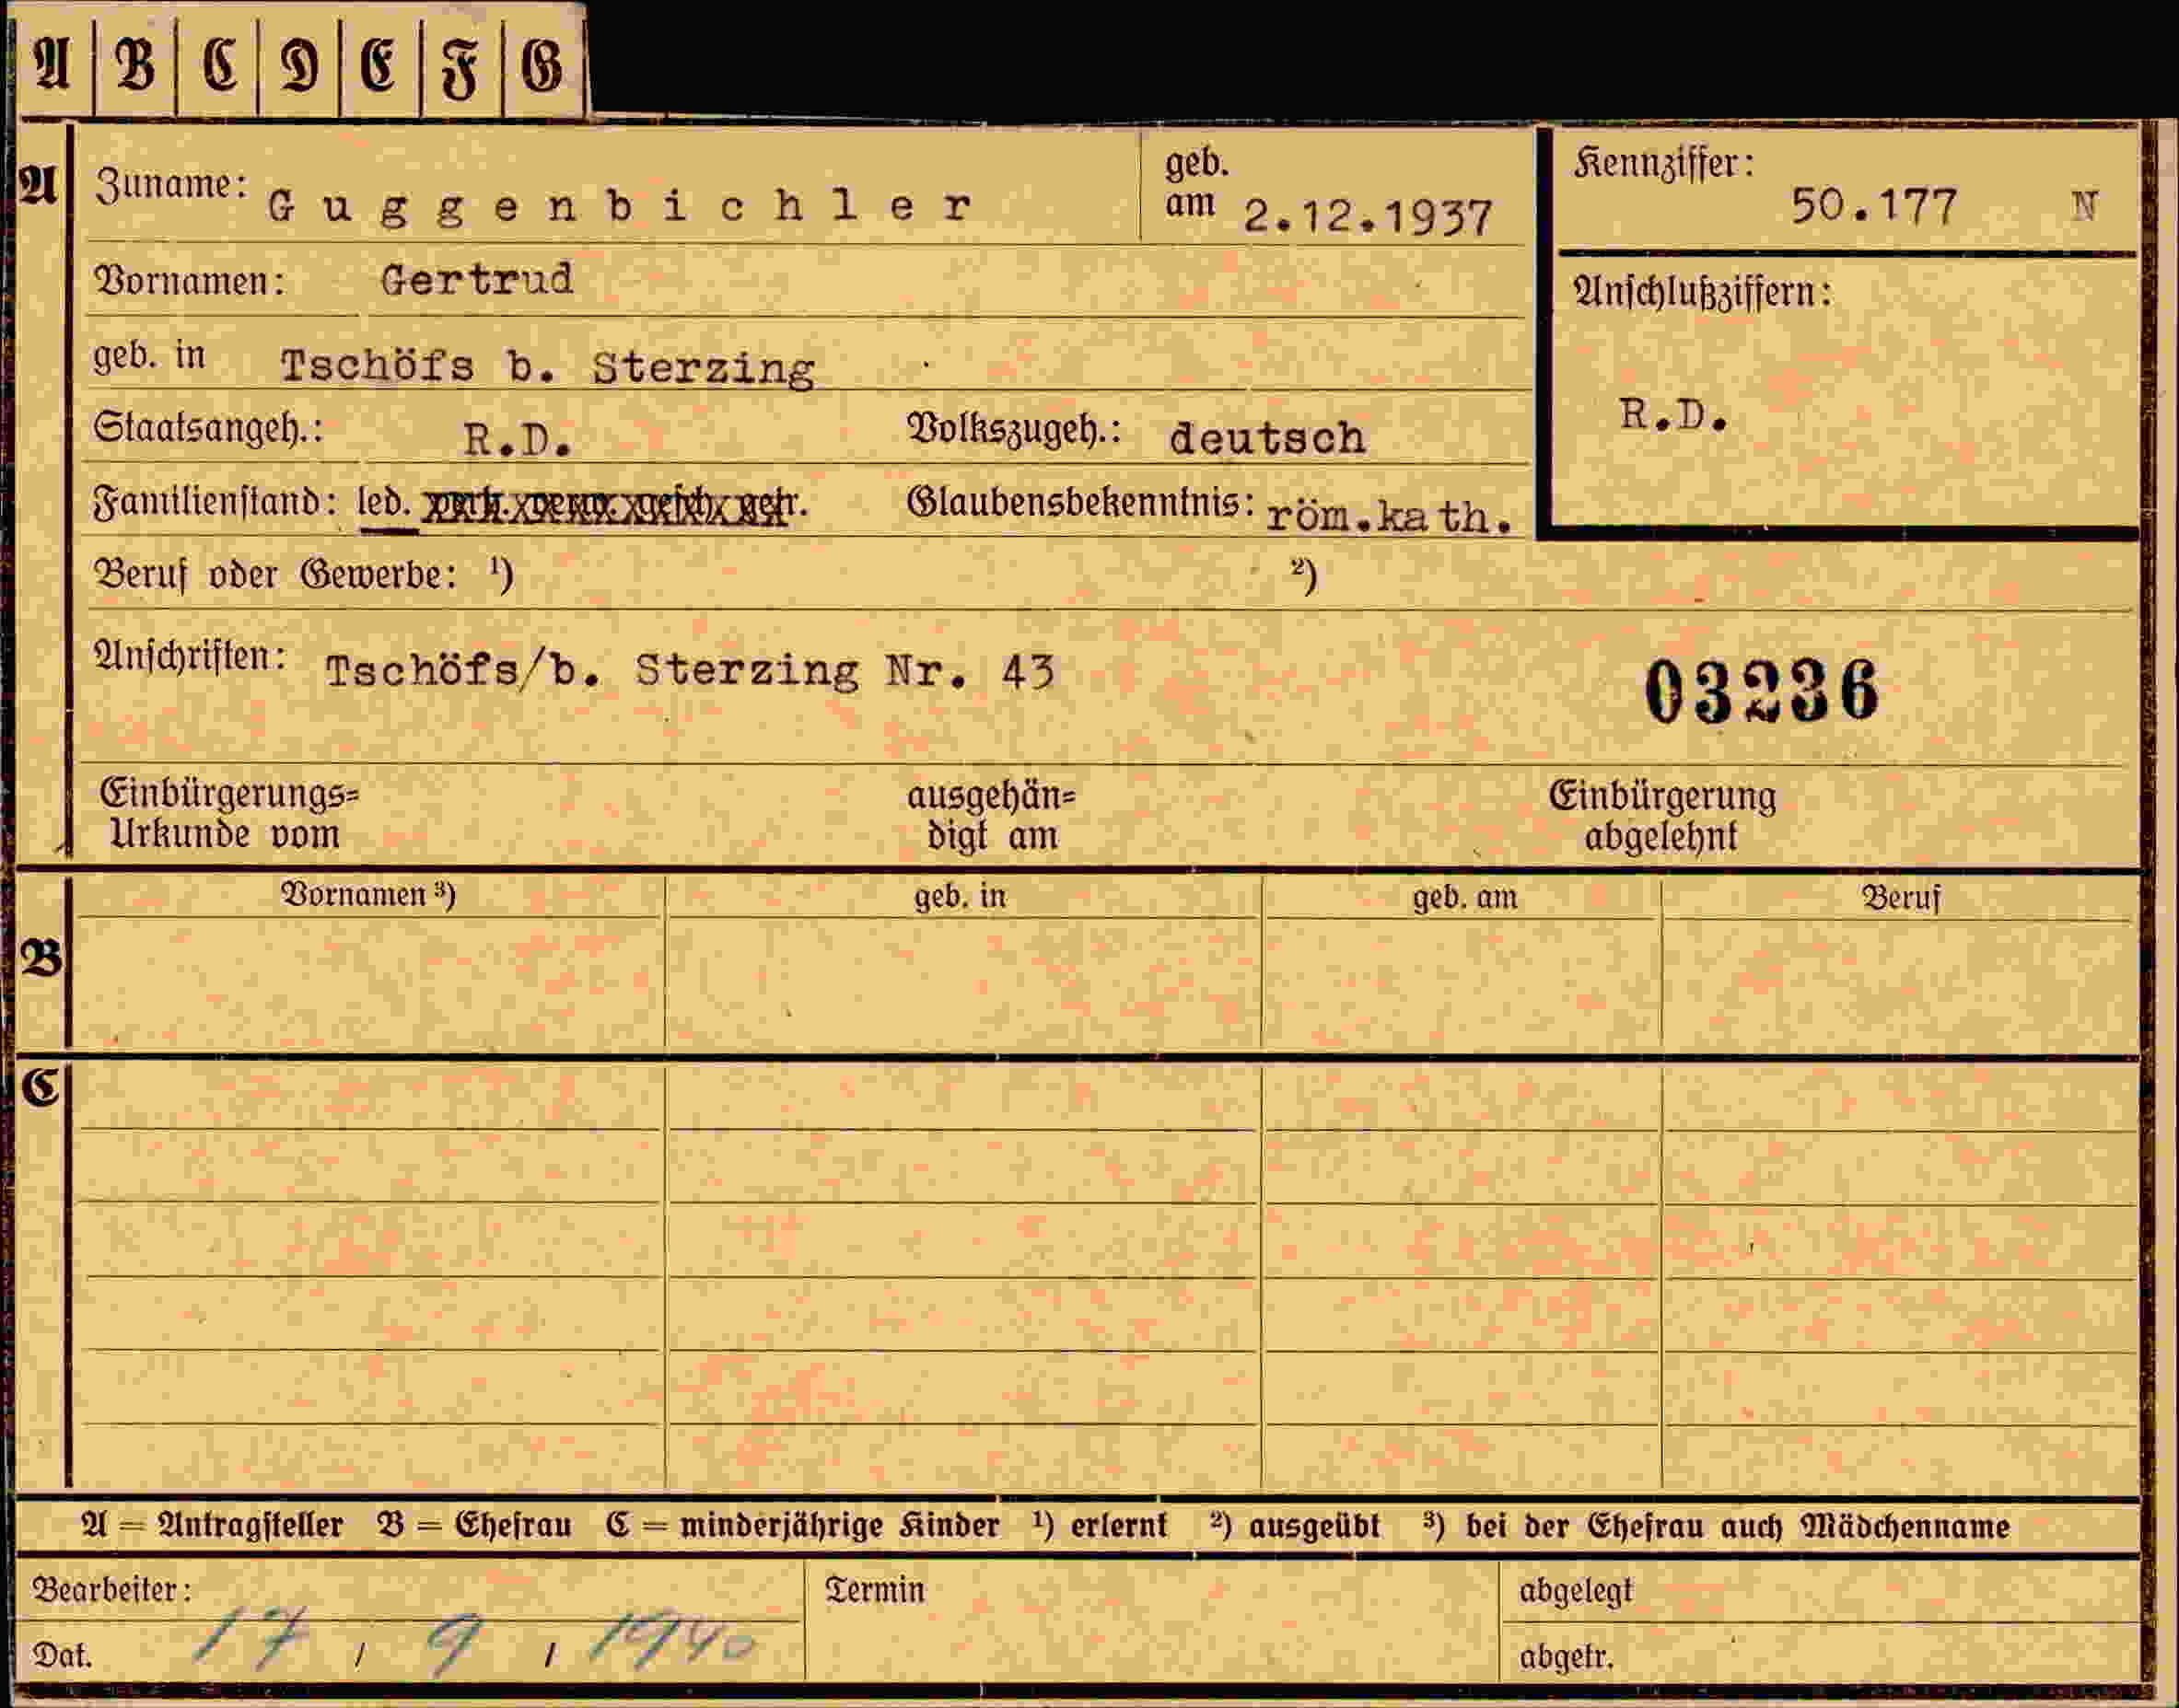 A B C D E F G
A
Zuname: Guggenbichler
geb. am 2.12.1937
Kennziffer: 50.177 N
Vornamen: Gertrud
Anschlußziffern:
R.D.
geb. in Tschöfs b. Sterzing
Staatsangeh.: R.D. Volkszugeh.: deutsch
Familienstand: led. verh. verw. gesch. getr. Glaubensbekenntnis: röm.kath.
Beruf oder Gewerbe: ¹) ²)
Anschriften: Tschöfs/b. Sterzing Nr. 43
03236
Einbürgerungs=
Urkunde vom
ausgehän=
digt am
Einbürgerung
abgelehnt
B
Vornamen ³) geb. in geb. am Beruf
C
A = Antragsteller B = Ehefrau C = minderjährige Kinder ¹) erlernt ²) ausgeübt ³) bei der Ehefrau auch Mädchenname
Bearbeiter: Termin abgelegt
Dat. 17 / 9 / 1940 abgetr.